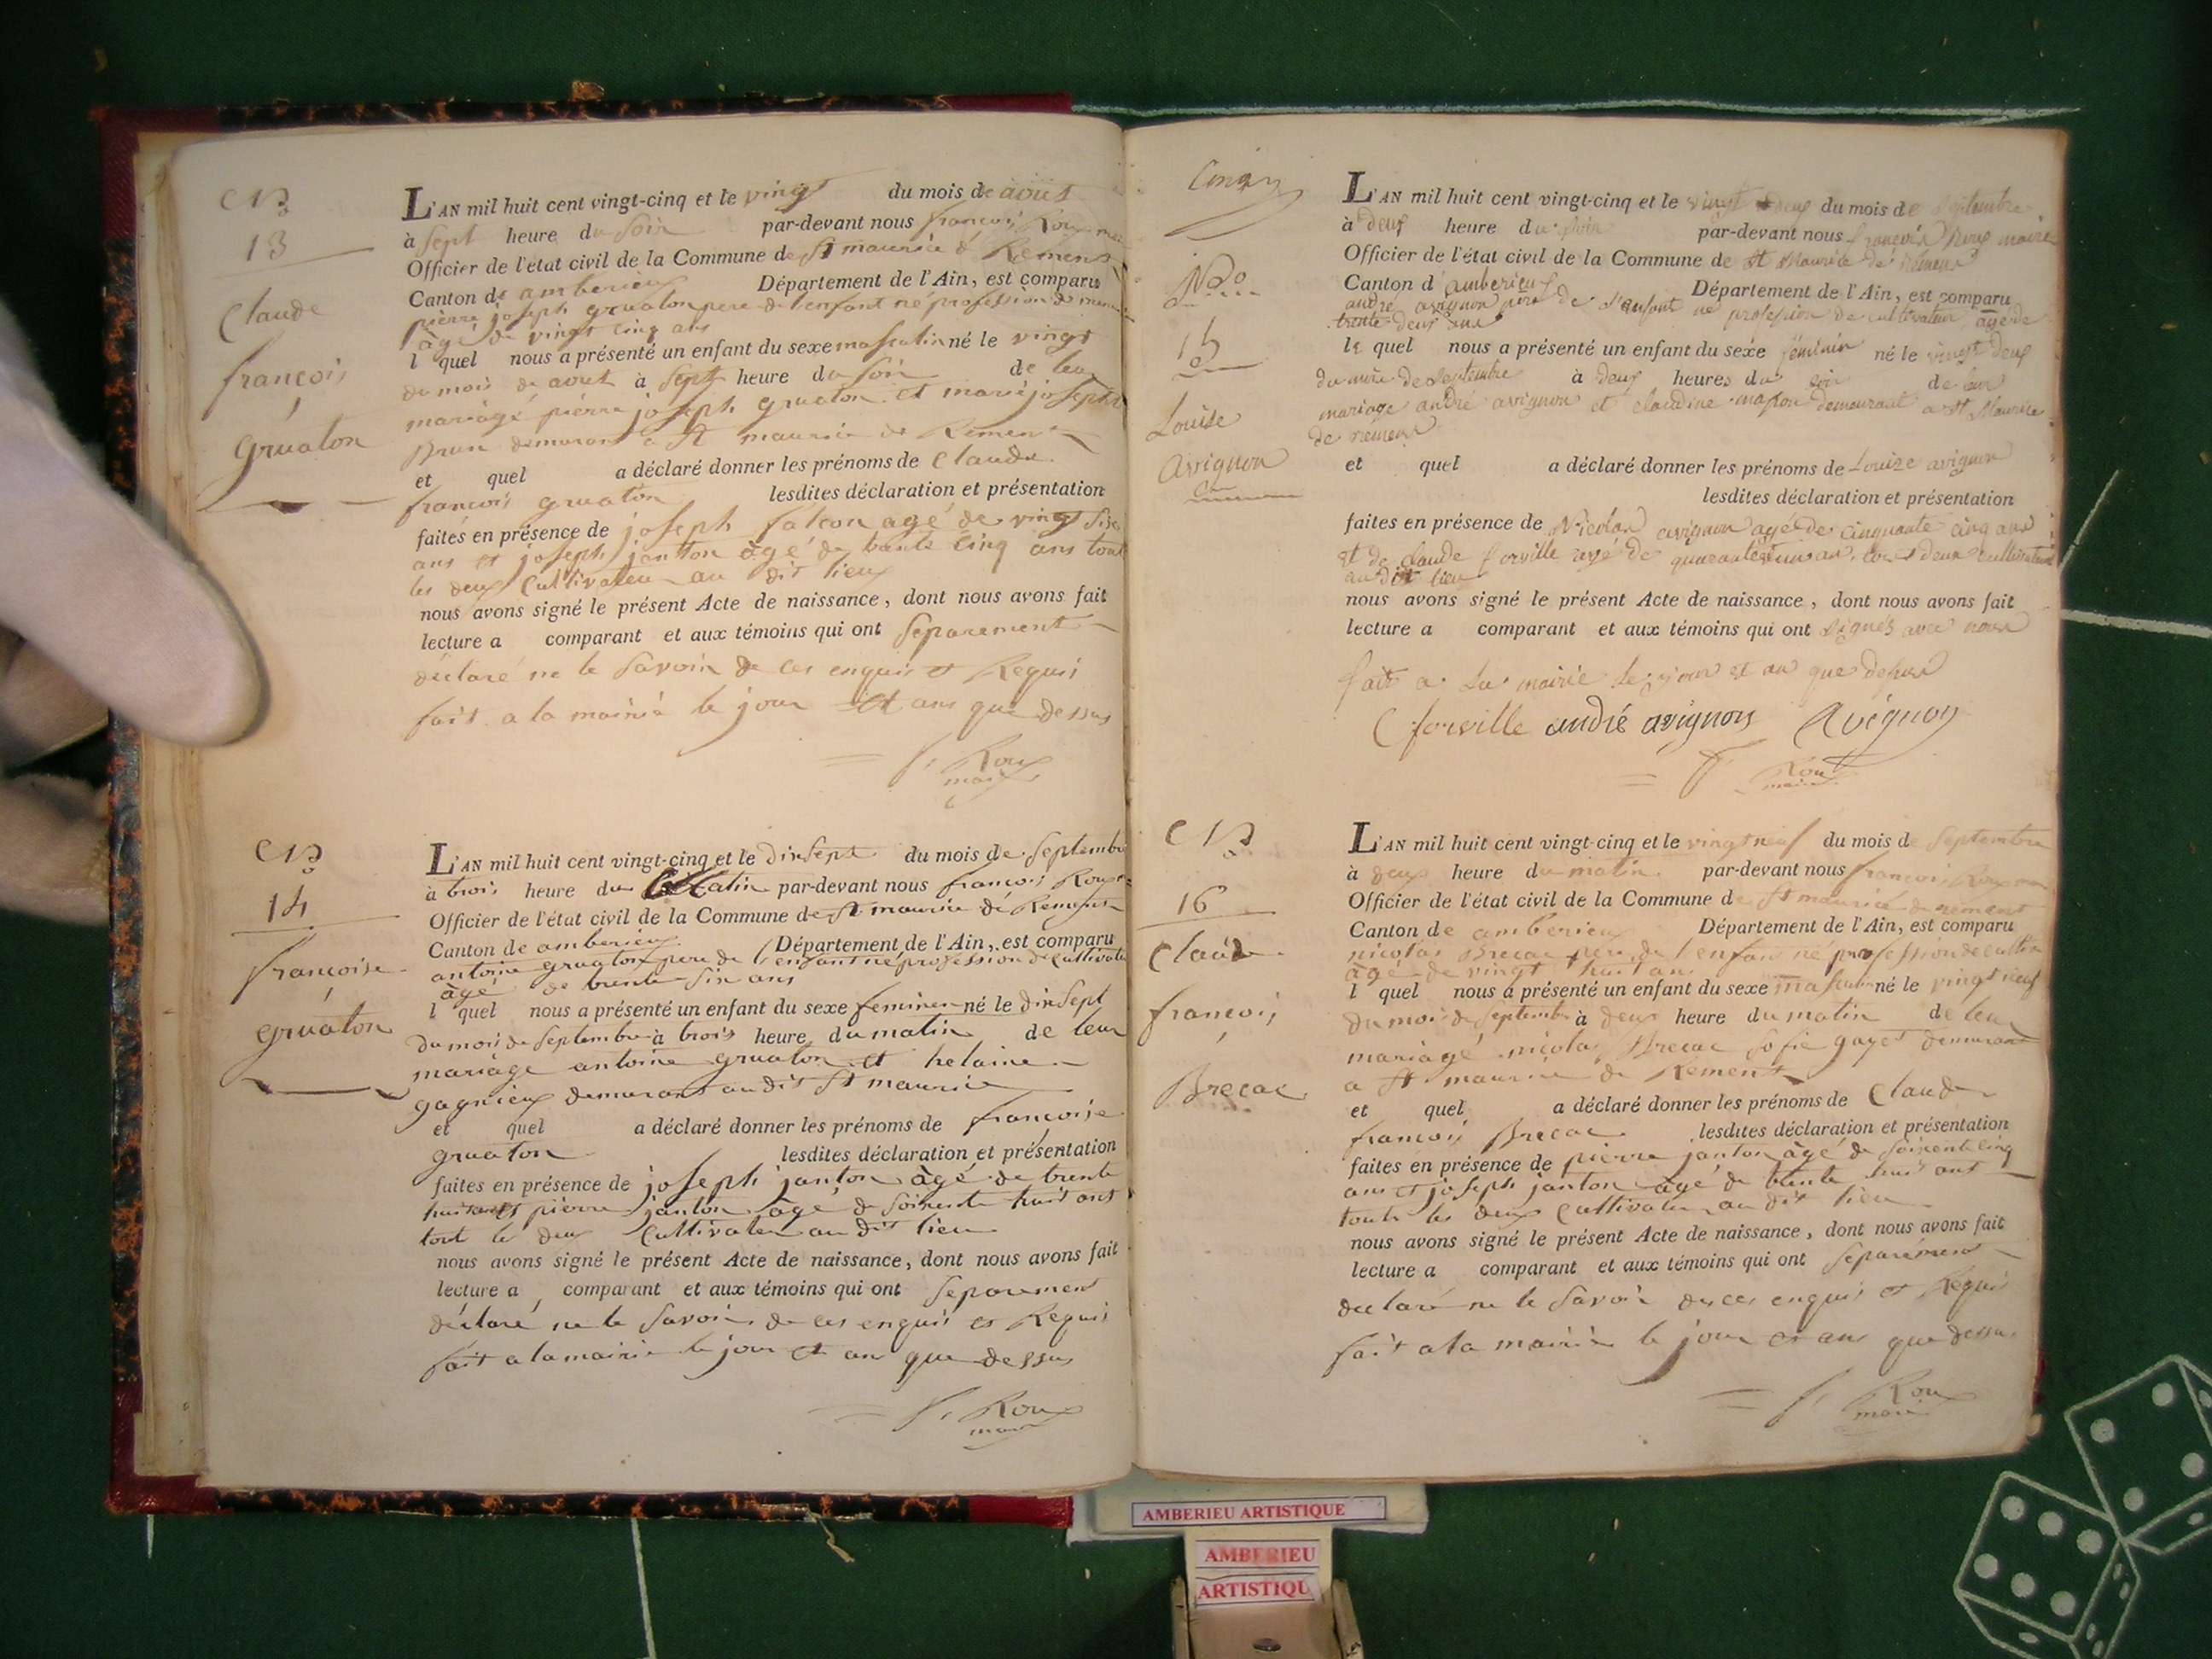 N°
13
Claude
françois
gruaton
L'AN mil huit cent vingt-cinq et le vingt du mois de août
à sept heure du soir par-devant nous françois Roux
Officier de l'état civil de la Commune de St maurice de Remens
Canton de amberieux Département de l'Ain, est comparu
pierre joseph gruaton pere de l'enfant né profession de
âgé de vingt cinq ans
l quel nous a présenté un enfant du sexe masculin né le vingt
du mois de aout à sept heure du soir de leur
mariàgé pierre joseph gruaton et marie joseph
Brun demurant a St maurice de Remens
et quel a déclaré donner les prénoms de Claude
francois gruaton lesdites déclaration et présentation
faites en présence de joseph falcon agé de vingt six
ans et joseph janton àgé de trante cinq ans tout
les deux Cultivateur au dit lieux
nous avons signé le présent Acte de naissance, dont nous avons fait
lecture a comparant et aux témoins qui ont separement
déclaré ne le savoir de ces enquis et Requis
fait a la mairie le jour et ans que dessus
f. Roux
maire
N°
14
françoise
gruaton
L'AN mil huit cent vingt-cinq et le dixsept du mois de septembre
à trois heure du matin par-devant nous françois Roux
Officier de l'état civil de la Commune de St maurice de Remens
Canton de amberieux Département de l'Ain, est comparu
antoine gruaton pere de l'enfant né profession de Cultivateur
àgé de trente six ans
l quel nous a présenté un enfant du sexe feminen né le dixsept
du mois de septembre à trois heure du matin de leur
mariàge antoine gruaton et helaine
gagnieux demurant au dit St maurice
et quel a déclaré donner les prénoms de francoise
gruaton lesdites déclaration et présentation
faites en présence de joseph janton àgé de trente
huit ans et pierre janton àgé de soixente huit ans
tout le deux Cultivateur au dit lieu
nous avons signé le présent Acte de naissance, dont nous avons fait
lecture a comparant et aux témoins qui ont separement
déclaré ne le savoir de ces enquis et Requis
fait a la mairie le jour et an que dessus
f. Roux
maire
N°
15
Louise
Avignon
L'AN mil huit cent vingt-cinq et le vingt deux du mois de septembre
à deux heure du soir par-devant nous françois Roux maire
Officier de l'état civil de la Commune de St Maurice de rémens
Canton d'amberieux Département de l'Ain, est comparu
andré avignon père de l'enfant né profession de cultivateur, âgé de
trente deux ans
le quel nous a présenté un enfant du sexe féminin né le vingt deux
du mois de septembre à deux heures du soir de leur
mariage andré avignon et claudine mapon demeurant a St Maurice
de rémens
et quel a déclaré donner les prénoms de Louize avignon
lesdites déclaration et présentation
faites en présence de Nicolas avignon agé de cinquante cinq ans
et de claude forville agé de quarante un an tout deux cultivateurs
au dit lieu
nous avons signé le présent Acte de naissance, dont nous avons fait
lecture a comparant et aux témoins qui ont signés avec nous
fait a la mairie le jour et an que dessus
C forville andré avignon Avignon
f. Roux
maire
N°
16
Claude
françois
Brecac
L'AN mil huit cent vingt-cinq et le vingtneuf du mois de Septembre
à deux heure du matin par-devant nous françois Roux
Officier de l'état civil de la Commune de St maurice de remens
Canton de amberieux Département de l'Ain, est comparu
nicolas Brecac pere de l'enfan né profession de
àgé de vingt huit ans
l quel nous a présenté un enfant du sexe né le vingt neuf
du mois de septembre à deux heure du matin de leur
mariàgé nicolas Brecac sofie gayet demurant
a St maurice de Remens
et quel a déclaré donner les prénoms de Claude
françois Brecac lesdites déclaration et présentation
faites en présence de pierre janton àgé de soixente cinq
ans et joseph janton àgé de trente huit ans
touts les deux Cultivateur au dit lieu
nous avons signé le présent Acte de naissance, dont nous avons fait
lecture a comparant et aux témoins qui ont separément
declaré ne le savoir de ces enquis et Requis
fait a la mairie le jour et ans que dessus
f. Roux
maire
AMBERIEU ARTISTIQUE
AMBERIEU
ARTISTIQU